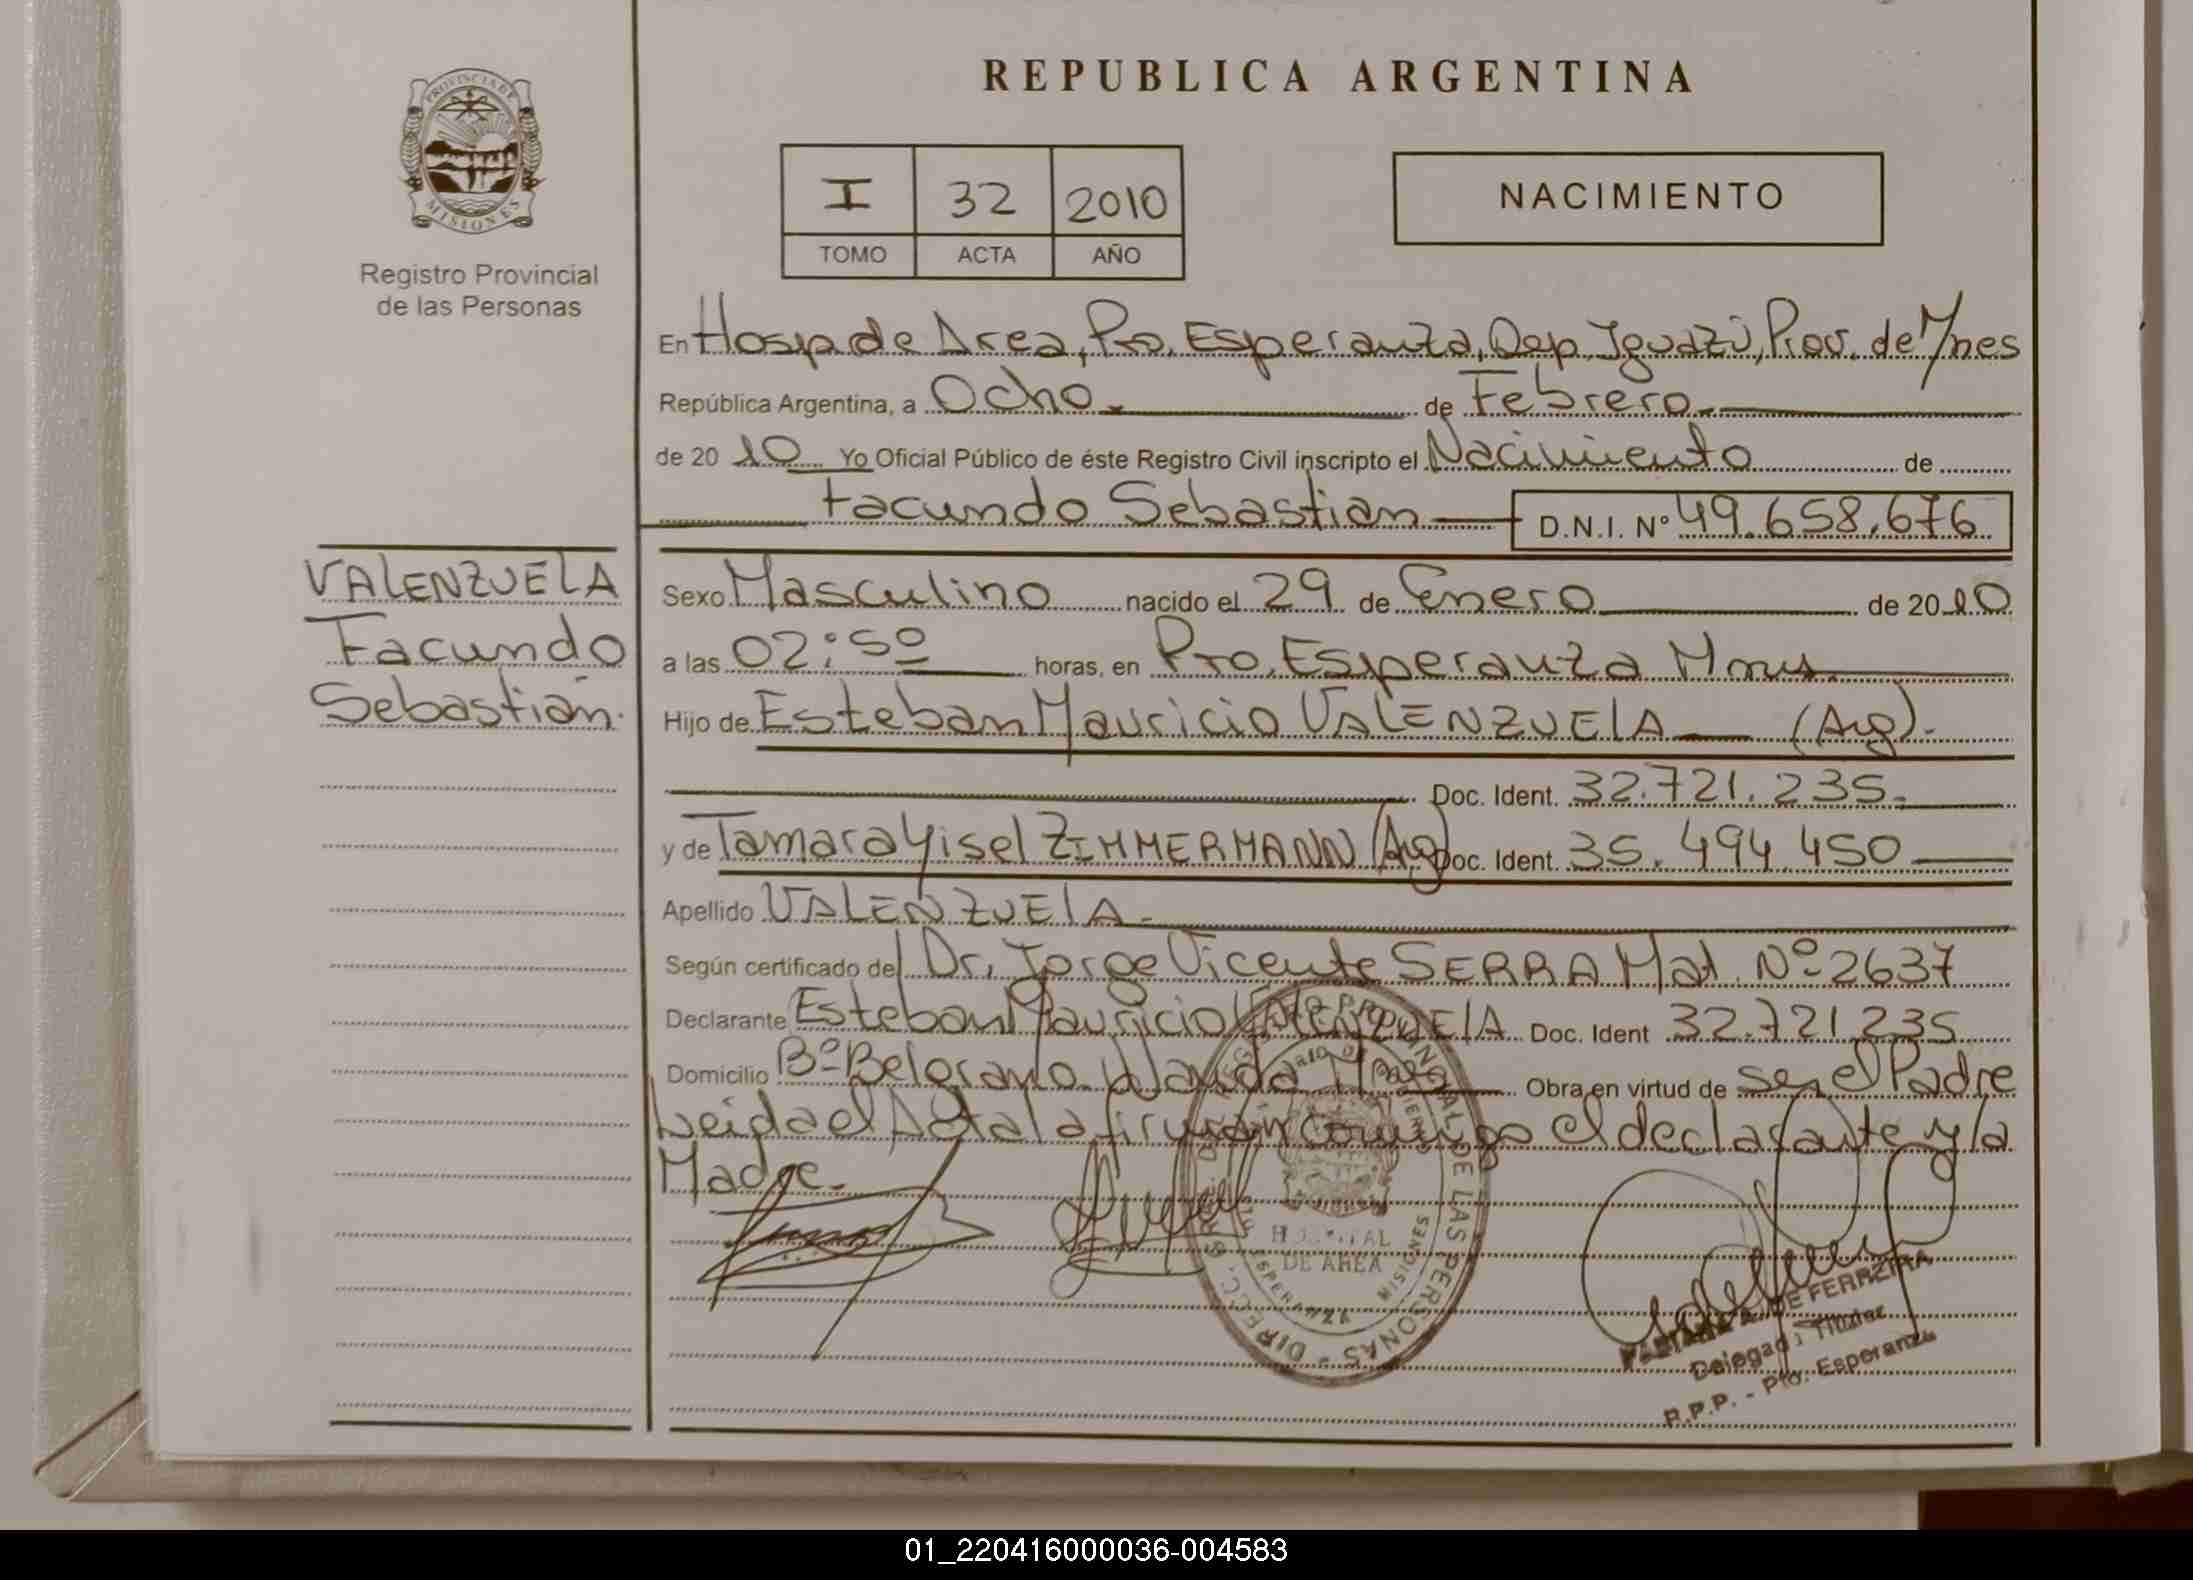 REPUBLICA ARGENTINA
PROVINCIA DE
MISIONES
Registro Provincial
de las Personas
I 32 2010
TOMO ACTA AÑO
NACIMIENTO
En Hosp. de Area, Pto. Esperanza, Dep. Iguazú, Prov. de M/nes
República Argentina, a Ocho. de Febrero.
de 20 10 Yo Oficial Público de éste Registro Civil inscripto el Nacimiento de
Facundo Sebastian D.N.I. Nº 49.658.676
VALENZUELA
Facundo
Sebastián.
Sexo Masculino nacido el 29 de Enero de 20 10
a las 02:50 horas, en Pto. Esperanza Mnes.
Hijo de Esteban Mauricio VALENZUELA (Arg).
Doc. Ident. 32.721.235.
y de Tamara Yisel ZIMMERMANN (Arg) Doc. Ident. 35.494.450
Apellido VALENZUELA.
Según certificado del Dr. Jorge Vicente SERRA Mat. Nº 2637
Declarante Esteban Mauricio VALENZUELA Doc. Ident 32.721.235
Domicilio Bº Belgrano. Wanda Obra en virtud de ser el Padre
Leida el Acta la firman conmigo el declarante y la
Madre.
PROVINCIAL DE LAS PERSONAS - DIRECC.
HOSPITAL
DE AREA
ESPERANZA MISIONES
DE FERREIRA
Delegada Titular
R.P.P. - Pto. Esperanza
01_220416000036-004583